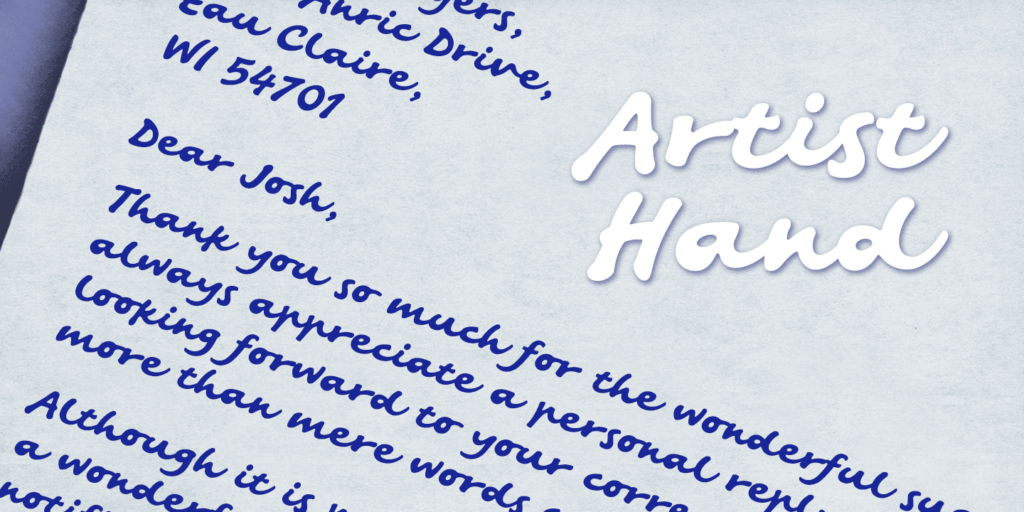 Anric Drive,
Eau Claire,
WI 54701
Dear Josh,
Thank you so much for the wonderful
always appreciate a personal
looking forward to your
more than mere words
Although it is
a
Artist
Hand